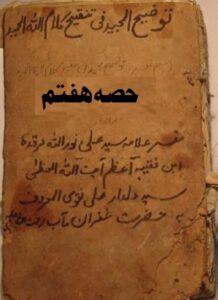 توضیح المجید فی تنقیح کلام اللہ الحمید
حصہ ہفتم
مفسر علامہ سید علی نور اللہ مرقدہ
ابن فقیہ اعظم آیت اللہ العظمیٰ
سید دلدار علی نقوی المعروف
بہ حضرت غفران مآب